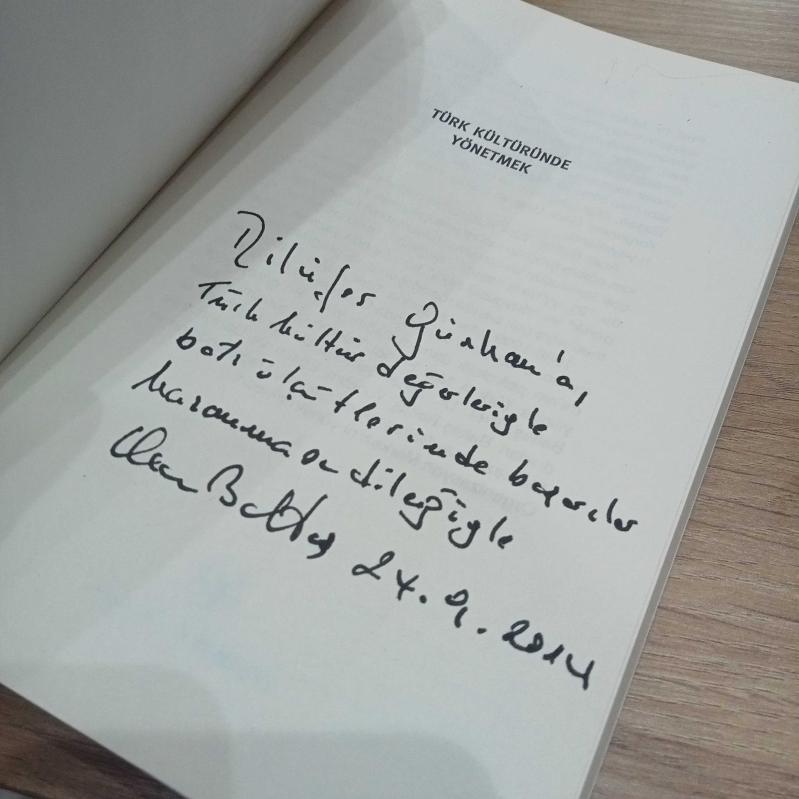 TÜRK KÜLTÜRÜNDE
YÖNETMEK
Nilüfer Gürkan'a,
Türk kültür değerleriyle
batı ölçütlerinde başarılar
kazanması dileğiyle
Acar Baltaş 24.9.2014